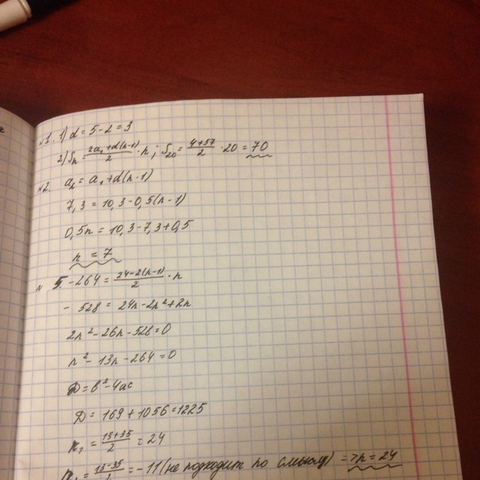 №1. 1) d = 5-2 = 3
2) Sn = (2a₁+d(n-1))/2 · n; S₂₀ = (4+57)/2 · 20 = 70
№2. aₙ = a₁+d(n-1)
7,3 = 10,3-0,5(n-1)
0,5n = 10,3-7,3+0,5
n = 7
№ 5. -264 = (24-2(n-1))/2 · n
- 528 = 24n-2n²+2n
2n²-26n-528=0
n²-13n-264=0
D=b²-4ac
D = 169+1056=1225
n₁ = (13+35)/2 = 24
= (13-35)/2 = -11 (не подходит по смыслу) => n = 24